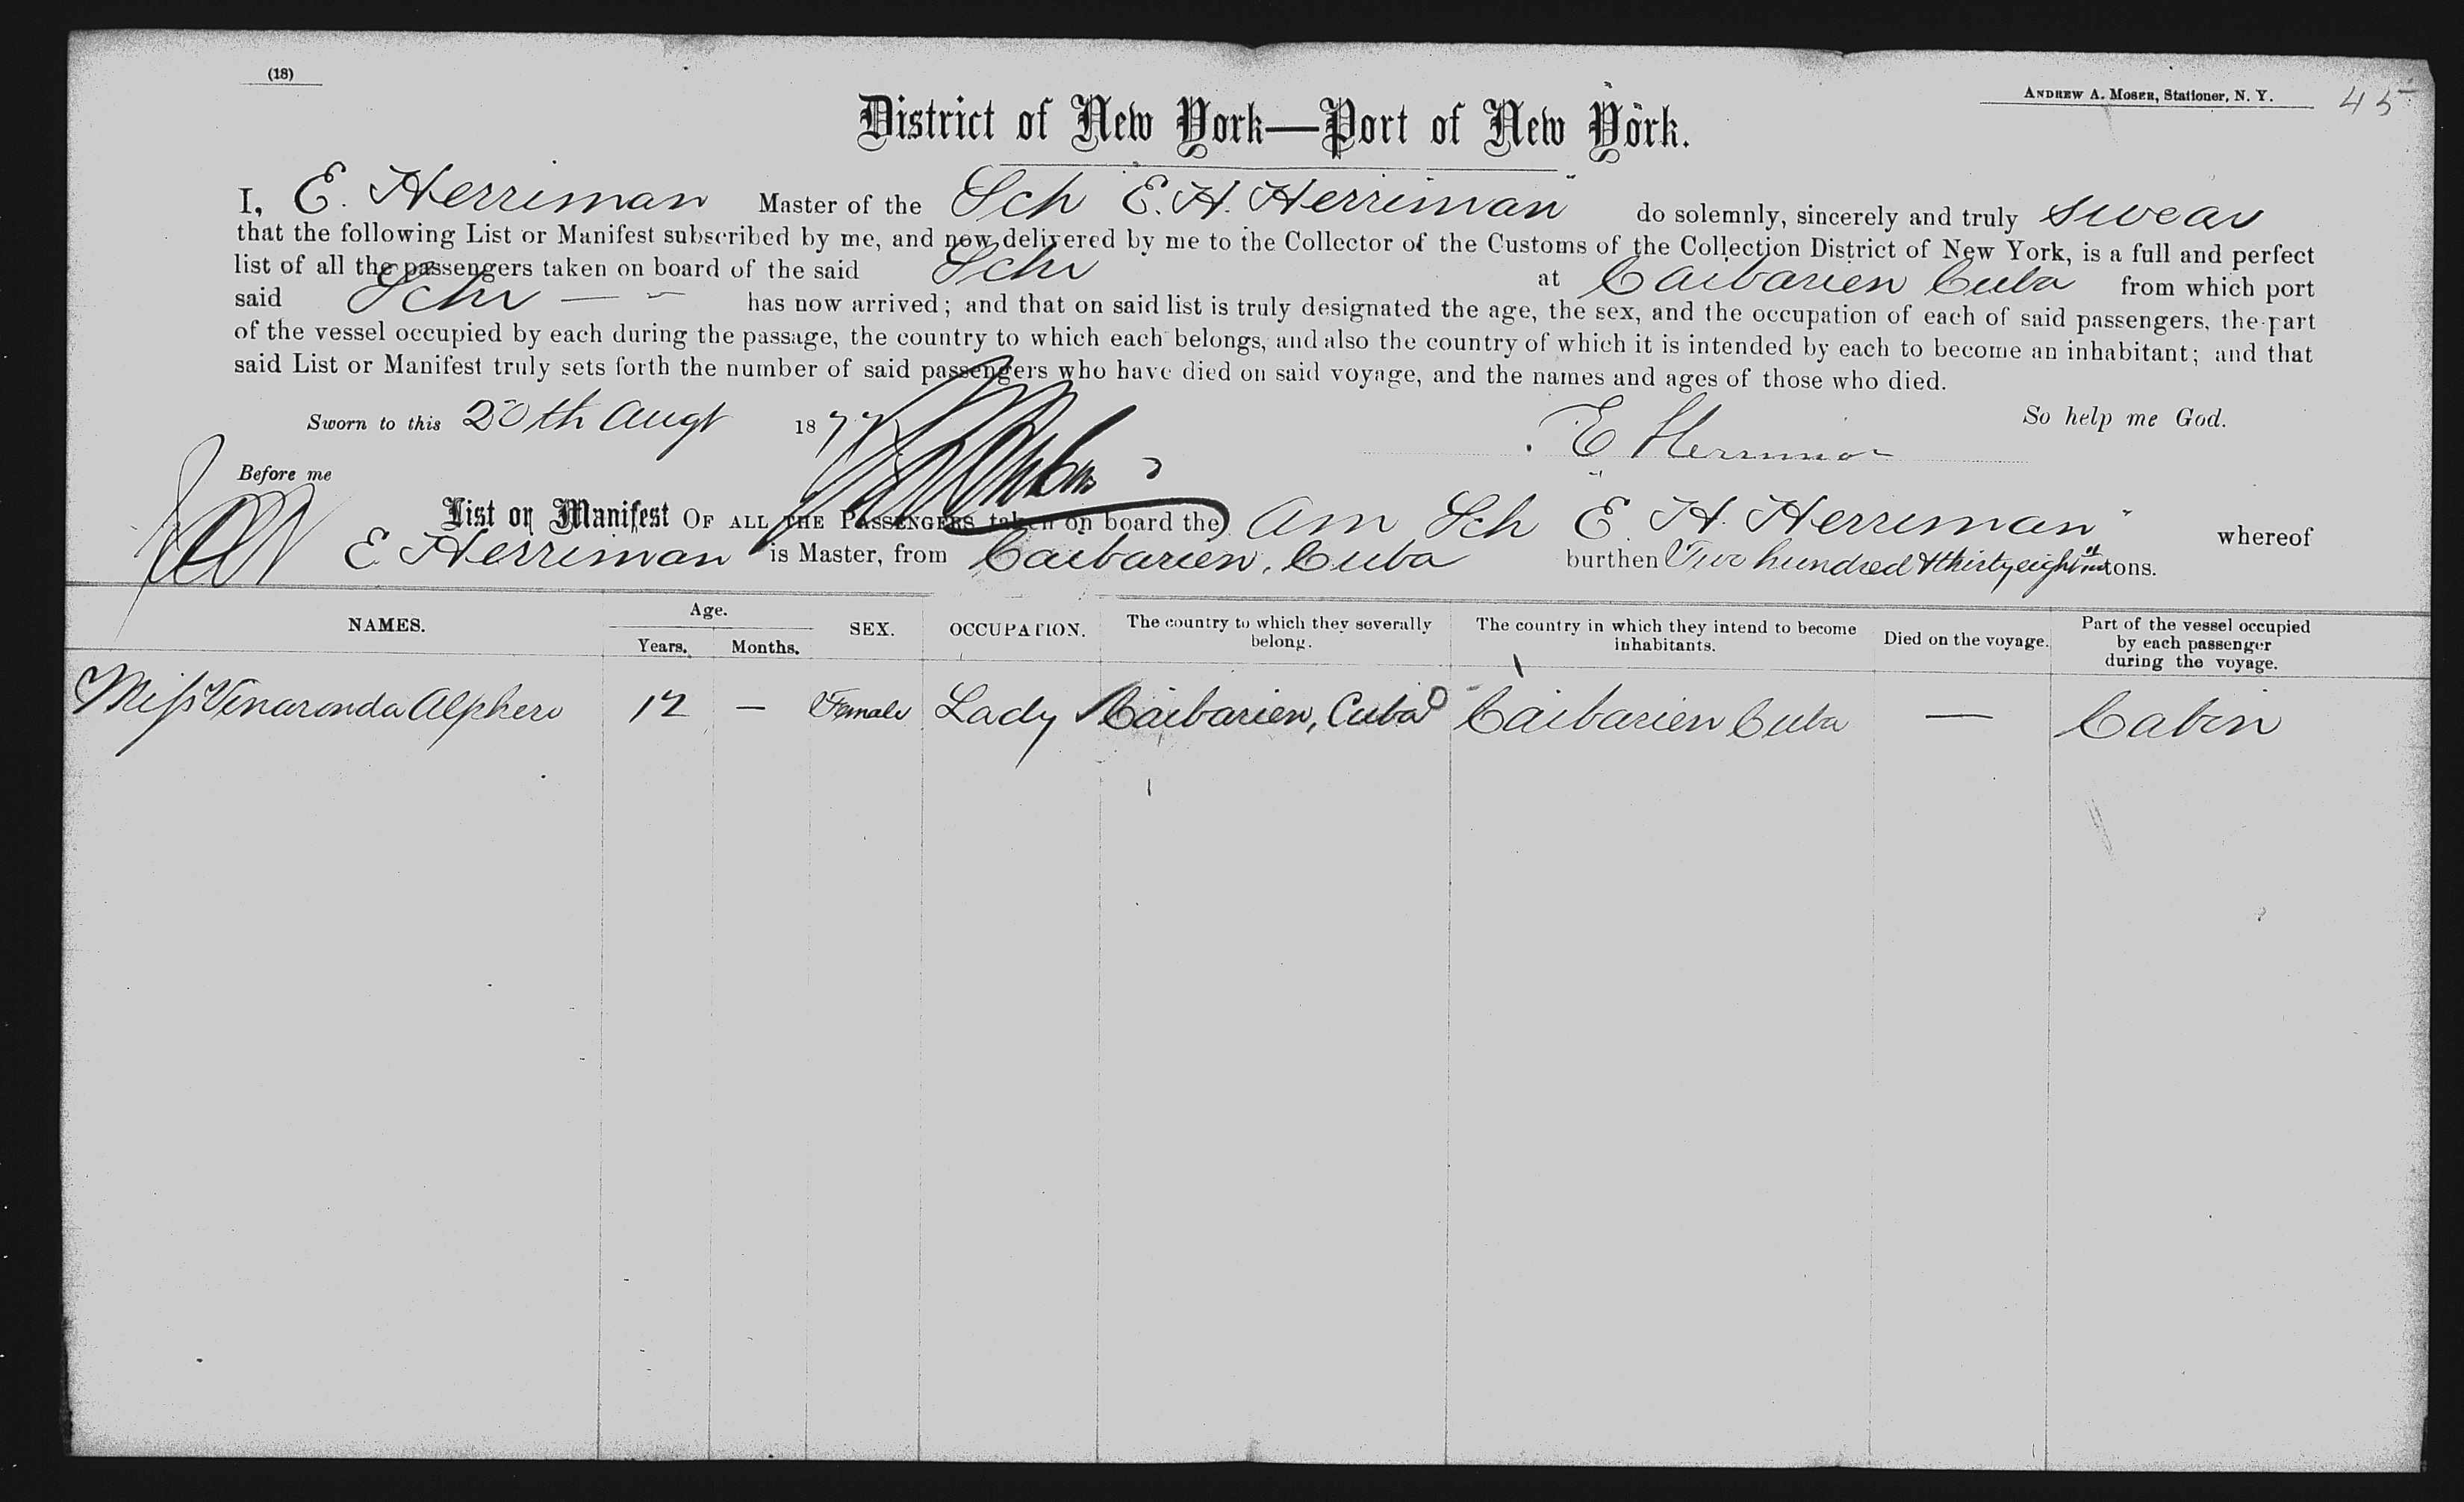 (18)
ANDREW A. MOSER, Stationer, N. Y. 45
District of New York—Port of New York.
I, E. Herriman Master of the Sch E. H. Herriman do solemnly, sincerely and truly swear
that the following List or Manifest subscribed by me, and now delivered by me to the Collector of the Customs of the Collection District of New York, is a full and perfect
list of all the passengers taken on board of the said Schr at Caibarien Cuba from which port
said Schr — has now arrived; and that on said list is truly designated the age, the sex, and the occupation of each of said passengers, the part
of the vessel occupied by each during the passage, the country to which each belongs, and also the country of which it is intended by each to become an inhabitant; and that
said List or Manifest truly sets forth the number of said passengers who have died on said voyage, and the names and ages of those who died.
Sworn to this 20th Augt 1877 So help me God.
E Herriman
Before me
List or Manifest OF ALL THE PASSENGERS taken on board the Am Sch E. H. Herriman whereof
E Herriman is Master, from Caibarien, Cuba burthen Two hundred & thirty eight tons.
NAMES. Age. Years. Months. SEX. OCCUPATION. The country to which they severally belong. The country in which they intend to become inhabitants. Died on the voyage. Part of the vessel occupied by each passenger during the voyage.
Miss 12 — Female Lady Caibarien, Cuba Caibarien Cuba — Cabin